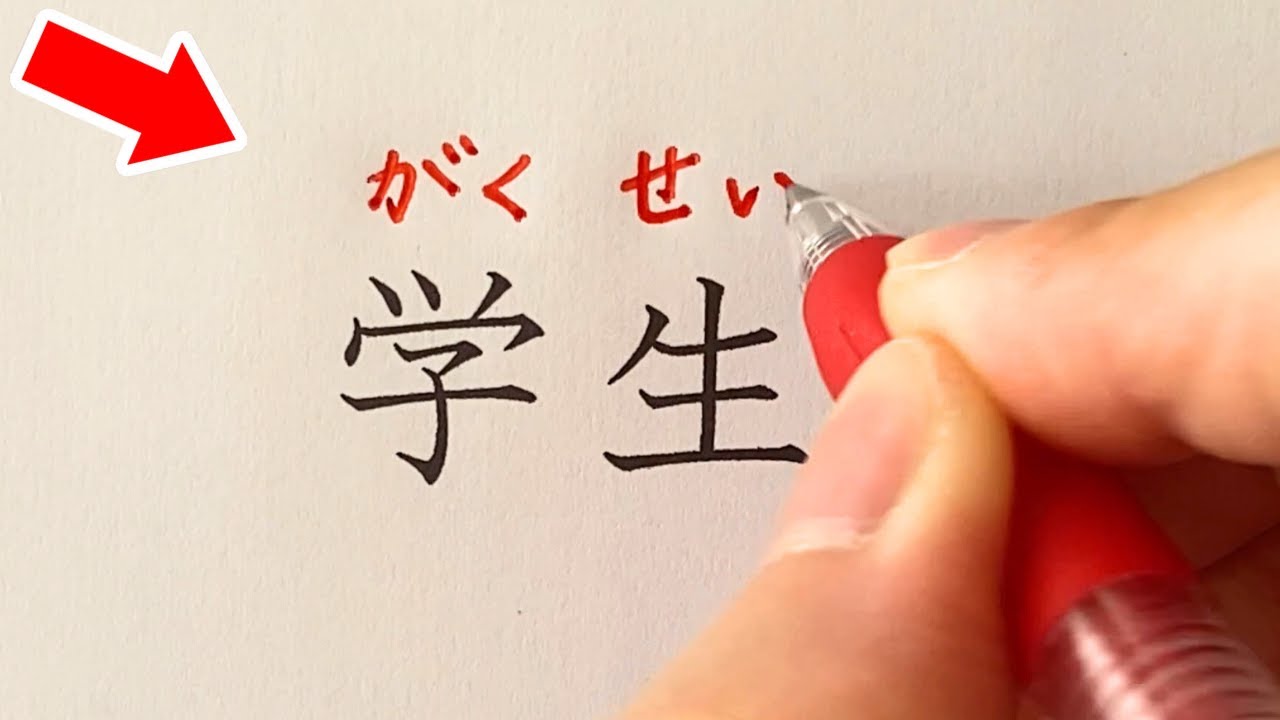 がく せい
学生